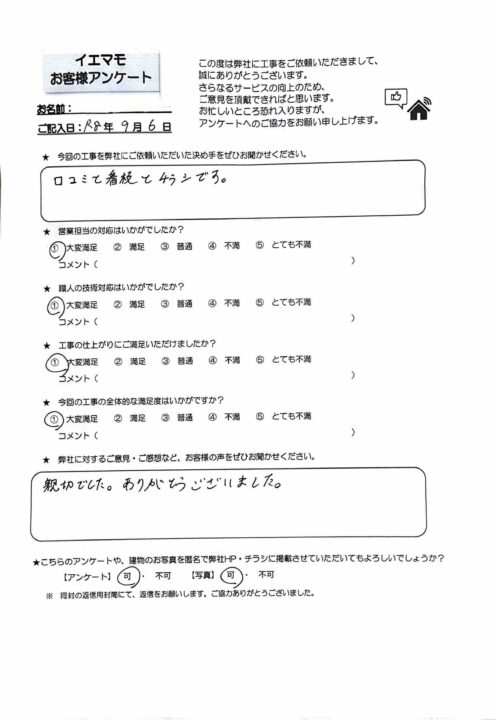 イエマモ
お客様アンケート
この度は弊社に工事をご依頼いただきまして、
誠にありがとうございます。
さらなるサービスの向上のため、
ご意見を頂戴できればと思います。
お忙しいところ恐れ入りますが、
アンケートへのご協力をお願い申し上げます。
お名前:
ご記入日:R8年 9月 6日
★ 今回の工事を弊社にご依頼いただいた決め手をぜひお聞かせください。
口コミと看板とチラシです。
★ 営業担当の対応はいかがでしたか?
① 大変満足 ② 満足 ③ 普通 ④ 不満 ⑤ とても不満
コメント( )
★ 職人の技術対応はいかがでしたか?
① 大変満足 ② 満足 ③ 普通 ④ 不満 ⑤ とても不満
コメント( )
★ 工事の仕上がりにご満足いただけましたか?
① 大変満足 ② 満足 ③ 普通 ④ 不満 ⑤ とても不満
コメント( )
★ 今回の工事の全体的な満足度はいかがですか?
① 大変満足 ② 満足 ③ 普通 ④ 不満 ⑤ とても不満
コメント( )
★ 弊社に対するご意見・ご感想など、お客様の声をぜひお聞かせください。
親切でした。ありがとうございました。
★こちらのアンケートや、建物のお写真を匿名で弊社HP・チラシに掲載させていただいてもよろしいでしょうか?
【アンケート】 可 ・ 不可 【写真】 可 ・ 不可
※ 同封の返信用封筒にて、返信をお願いします。ご協力ありがとうございました。